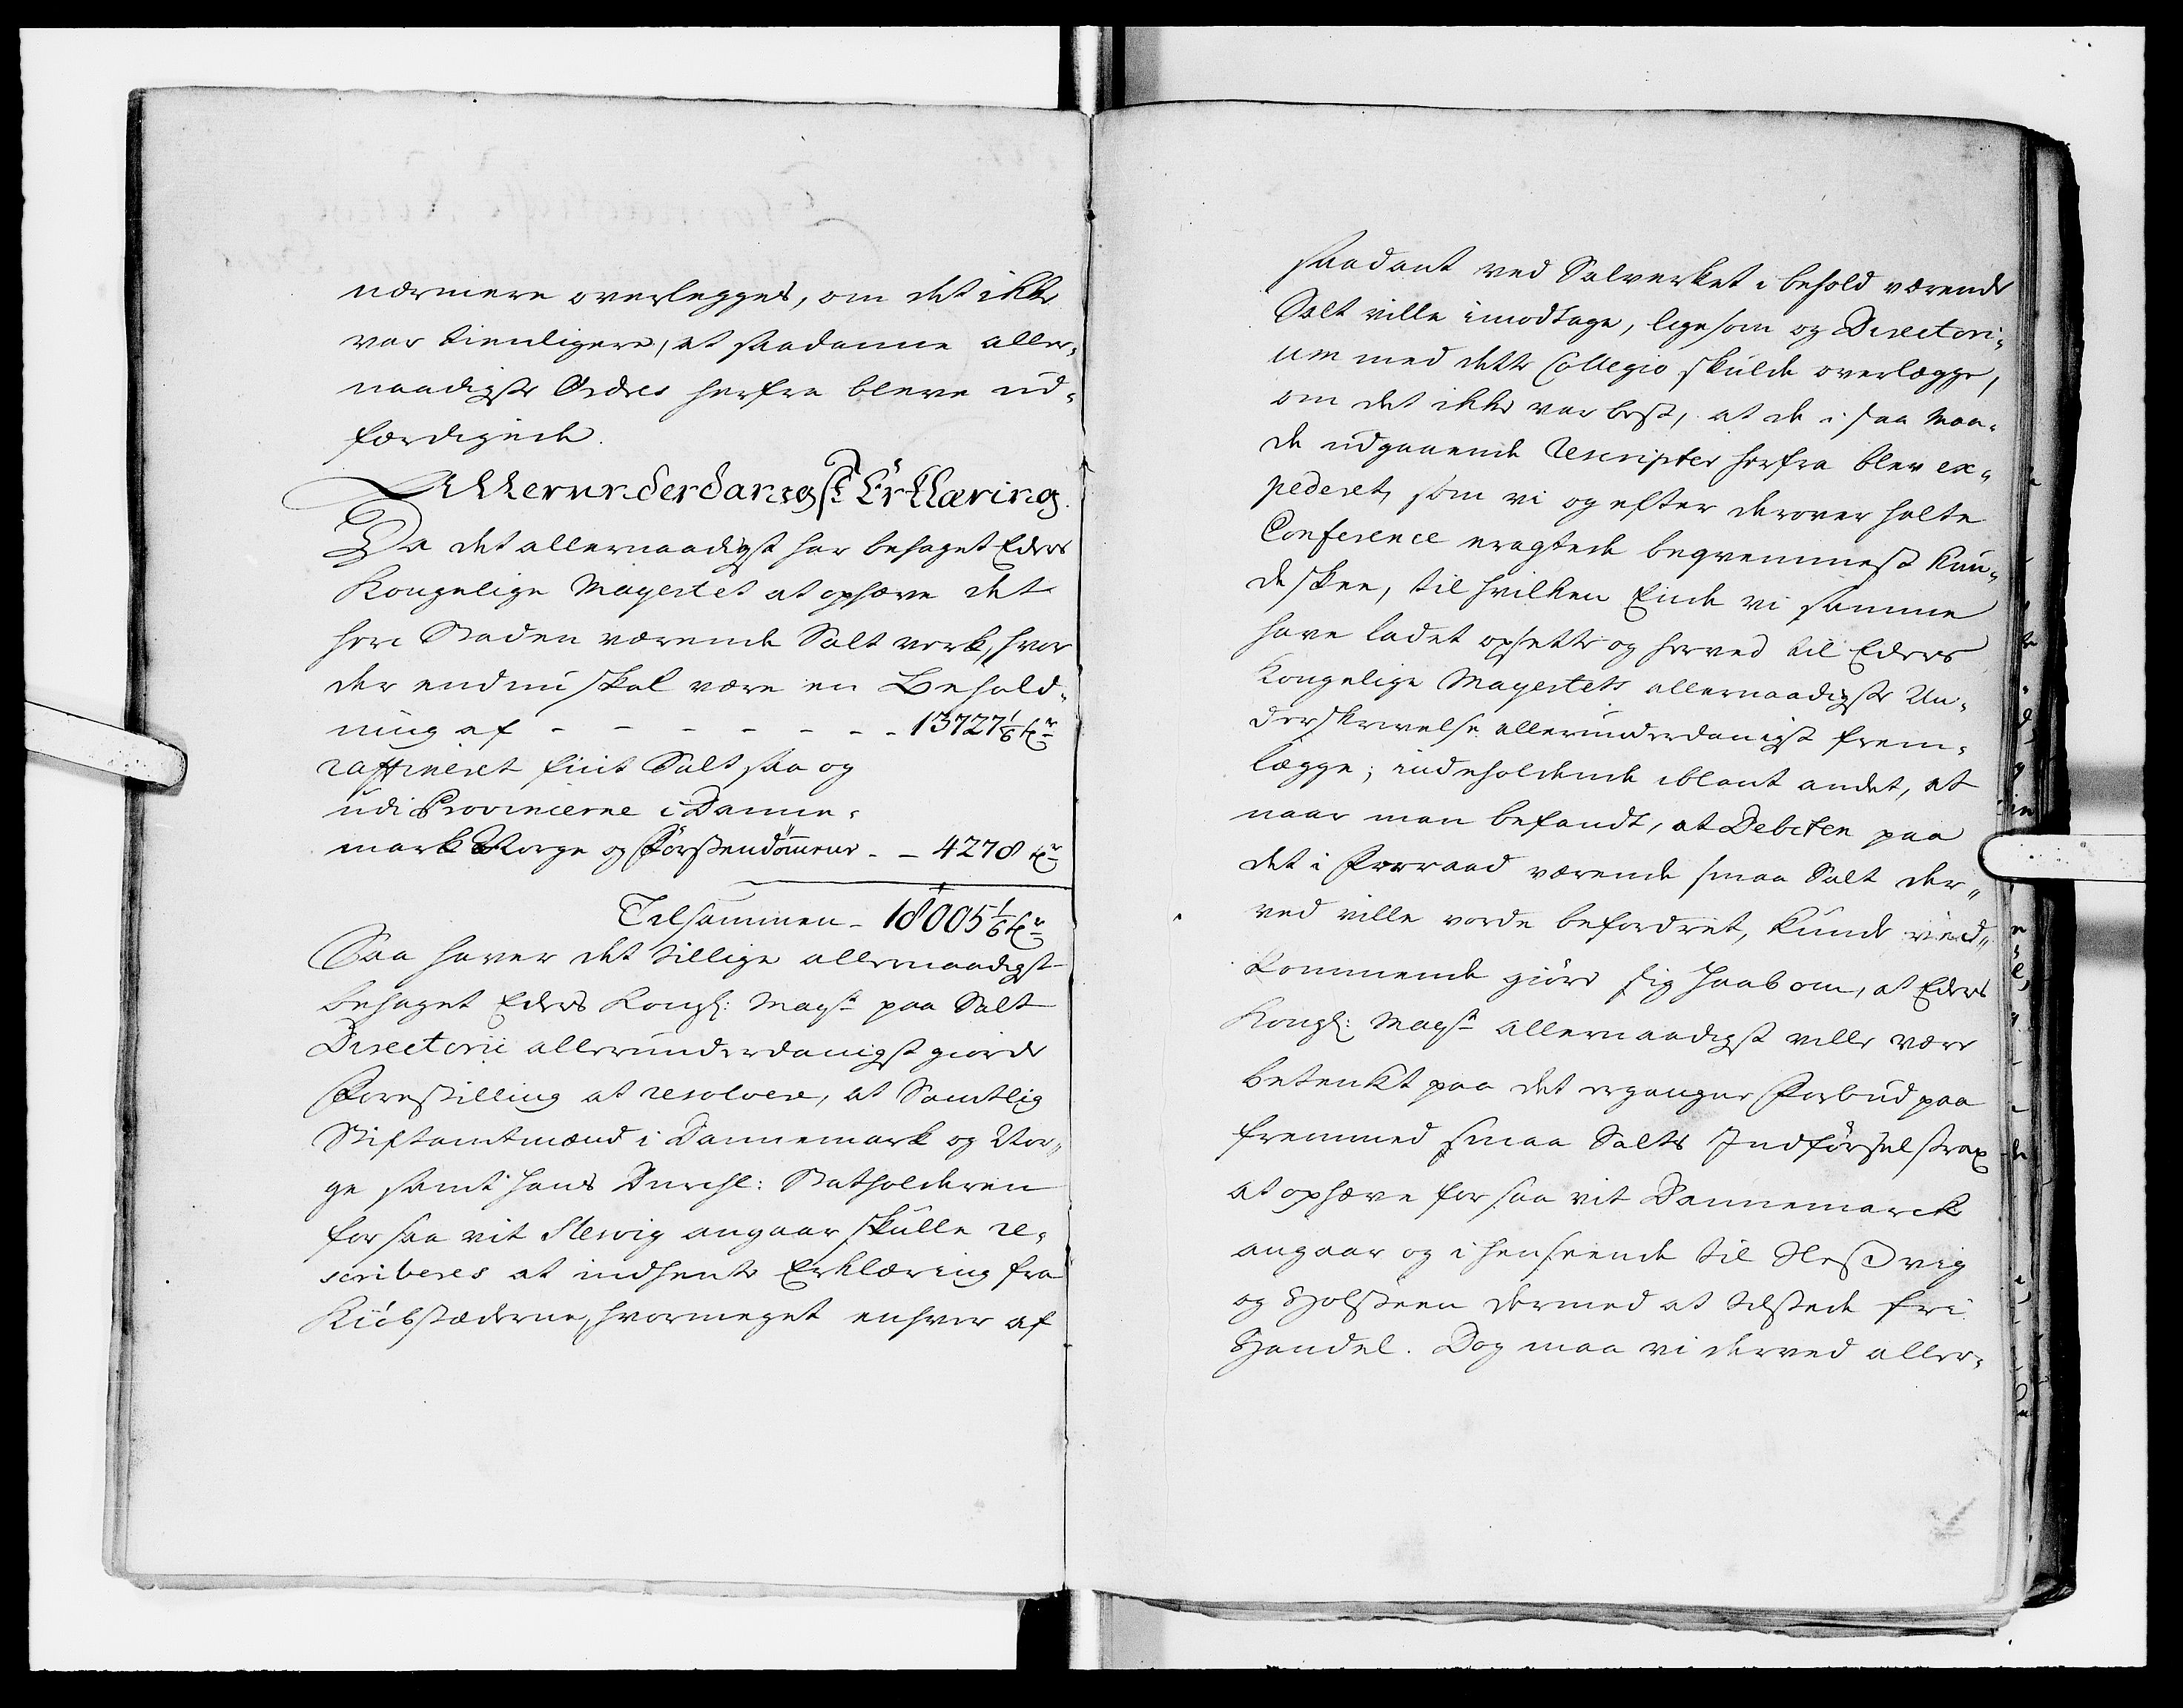 nærmere overlegges, om det ikke
var tienligere, at saadanne aller-
naadigste Ordres herfra bleve ud-
færdigede.
Allerunderdanigste Erklæring.
Da det allernaadigst har behaget Eders
Kongelige Mayestet at ophæve det
her i Staden værende Salt verk, hvor
der endnu skal være en Behold-
ning af - - - - - - - 13727 1/6 tr
raffineret fiint Salt saa og
udi Provincerne i Danne-
mark Norge og Førstendømmene - - 4278 tr
Tilsammen - 18005 1/6 tr
Saa haver det tillige allernaadigst
behaget Eders Kongl: Mayst paa Salt
Directorii allerunderdanigst giorde
Forestilling at resolvere, at Samtlig
Stiftamtmænd i Dannemark og Nor-
ge samt Hans Durchl: Statholderen
for saa vit Slesvig angaar skulle re-
scriberes at indhente Erklæring fra
Kiöbstæderne, hvormeget enhver af
saadant ved Salverket i behold værende
Salt ville imodtage, ligesom og Directori-
um med dette Collegio skulde overlægge,
om det ikke var best, at de i saa Maa-
de udgaaende Rescripter herfra blev ex-
pederet, som vi og efter derover holte
Conference eragtede beqvemmest kun-
de skee, til hvilken Ende vi samme
have ladet opsette og herved til Eders
Kongelige Mayestets allernaadigste Un-
derskrivelse allerunderdanigst frem-
lægge; indeholdende iblant andet, at
naar man befandt, at Debiten paa
det i Forraad værende smaa Salt der-
ved ville vorde befordret, kunde ved-
kommende giøre sig Haab om, at Eders
Kongl: Mayst allernaadigst ville være
betenkt paa det ergangne Forbud paa
fremmed smaa Salts Indførsel strax
at ophæve for saa vit Dannemarck
angaar og i henseende til Slesvig
og Holsteen dermed at tilstede fri
Handel. Dog maa vi derved aller-